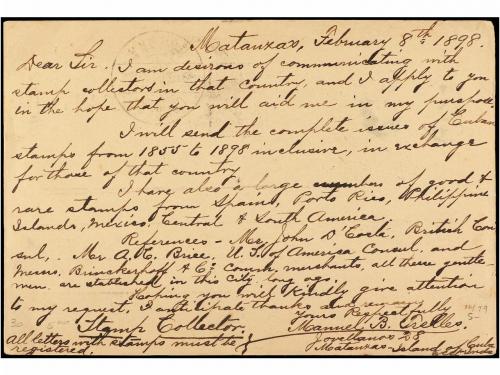 Matanzas, February 8th 1898.
Dear Sir. I am desirous of communicating with
stamp collectors in that country, and I apply to you
in the hope that you will aid me in my purpose
I will send the complete issues of Cuban
stamps from 1855 to 1898 inclusive, in exchange
for those of that country.
I have also a large numbers of good &
rare stamps from Spain, Porto Rico, Philippine
Islands, Mexico, Central & South America.
References - Mr. John D'Costa, British Con
sul, Mr A. C. Brice, U. S. of America Consul, and
Brinckerhoff & Co. Comm. merchants, all these gentle-
men are established in this City long ago.
Hoping you will kindly give attention
to my request, I anticipate thanks and remain
Yours Respectfully
Stamp Collector. Manuel B. Trelles.
Jovellanos 28
All letters with stamps must be Matanzas - Island of Cuba
registered.